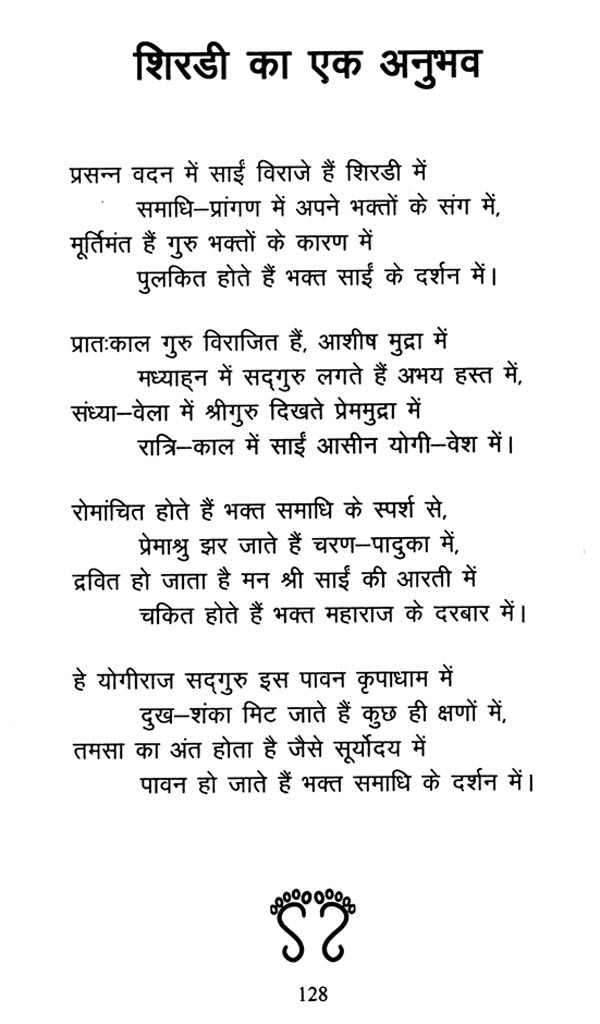 शिरडी का एक अनुभव
प्रसन्न वदन में साईं विराजे हैं शिरडी में
समाधि–प्रांगण में अपने भक्तों के संग में,
मूर्तिमंत हैं गुरु भक्तों के कारण में
पुलकित होते हैं भक्त साईं के दर्शन में।
प्रातःकाल गुरु विराजित हैं, आशीष मुद्रा में
मध्याह्न में सद्‌गुरु लगते हैं अभय हस्त में,
संध्या–वेला में श्रीगुरु दिखते प्रेममुद्रा में
रात्रि–काल में साईं आसीन योगी–वेश में।
रोमांचित होते हैं भक्त समाधि के स्पर्श से,
प्रेमाश्रु झर जाते हैं चरण–पादुका में,
द्रवित हो जाता है मन श्री साईं की आरती में
चकित होते हैं भक्त महाराज के दरबार में।
हे योगीराज सद्‌गुरु इस पावन कृपाधाम में
दुख–शंका मिट जाते हैं कुछ ही क्षणों में,
तमसा का अंत होता है जैसे सूर्योदय में
पावन हो जाते हैं भक्त समाधि के दर्शन में।
128